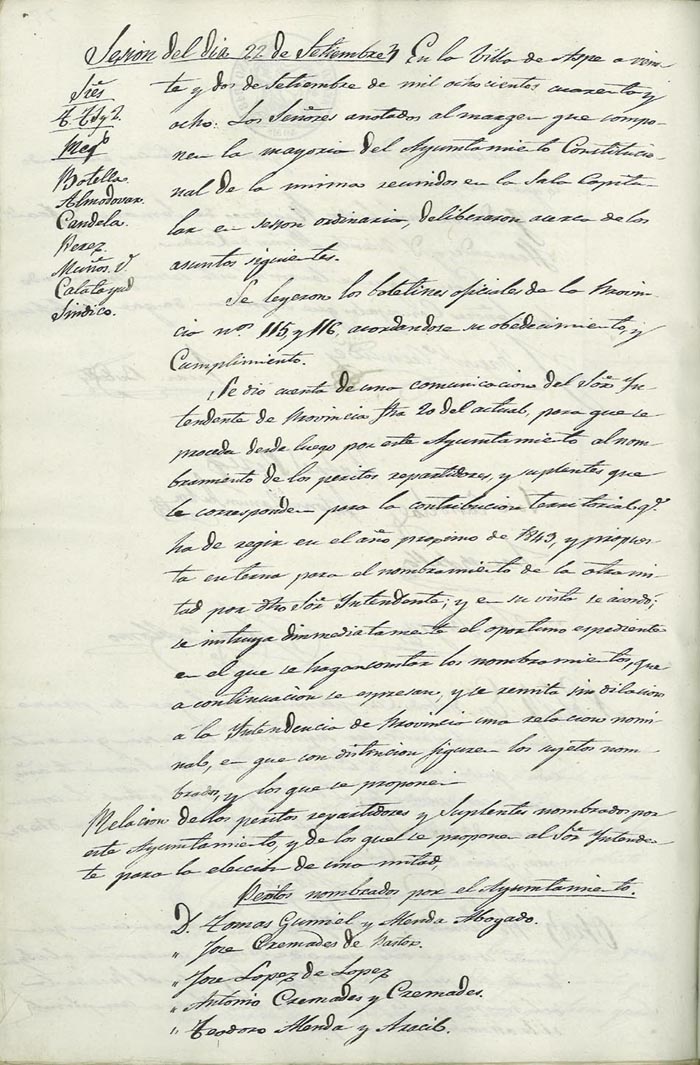 Sesion del dia 22 de Setiembre } En la Villa de Aspe a vein-
te y dos de Setiembre de mil ochocientos cuarenta y
ocho: Los Señores anotados al margen que compo-
nen la mayoria del Ayuntamiento Constitucio-
nal de la misma reunidos en la Sala Capitu-
lar en sesion ordinaria, deliberaron acerca de los
asuntos siguientes.
Sres
Botella
Almodovar.
Candela.
Perez.
Muños.
Calatayud
Sindico.
Se leyeron los boletines oficiales de la Provin-
cia nos. 115, y 116, acordandose su obedecimiento, y
Cumplimiento.
Se dió cuenta de una comunicacion del Sor. In-
tendente de Provincia fha 20 del actual, para que se
proceda desde luego por este Ayuntamiento al nom-
bramiento de los peritos repartidores, y suplentes que
le corresponden para la contribucion territorial q.e
ha de regir en el año proximo de 1849, y propues-
ta en terna para el nombramiento de la otra mi-
tad por dho Sor. Intendente; y en su vista se acordó;
se instruya inmediatamente el oportuno espediente
en el que se hagan constar los nombramientos, que
a continuacion se espresan, y se remita sin dilacion
á la Intendencia de Provincia una relacion nomi-
nal, en que con distincion figuren los sujetos nom-
brados, y los que se proponen
Relacion de los peritos repartidores y suplentes nombrados por
este Ayuntamiento, y de los que se proponen al Sor. Intenden-
te para la eleccion de una mitad,
Peritos nombrados por el Ayuntamiento.
D. Tomas Gumiel y Mendo Abogado.
" Jose Cremades de Pastor.
" Jose Lopez de Lopez
" Antonio Cremades y Cremades.
" Teodoro Alenda y Aracil.